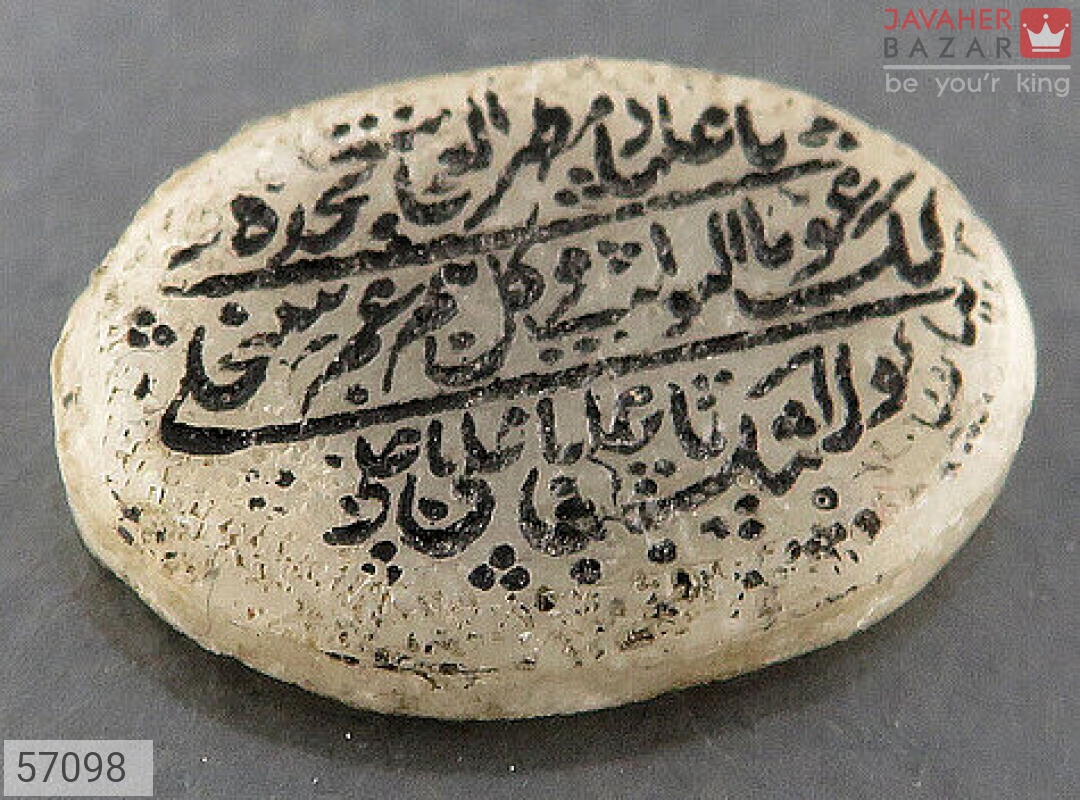 JAVAHER
BAZAR
be you'r king
ناد علیا مظهر العجائب تجده
عونا لک فی النوائب کل هم و غم سینجلی
بولایتک یا علی یا علی یا علی
57098